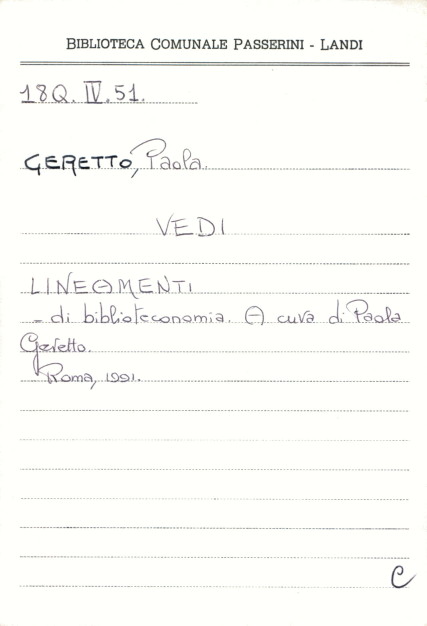 BIBLIOTECA COMUNALE PASSERINI - LANDI
18Q. IV. 51.
GERETTO, Paola.
VEDI
LINEAMENTI
- di biblioteconomia. A cura di Paola
Geretto.
Roma, 1991.
C